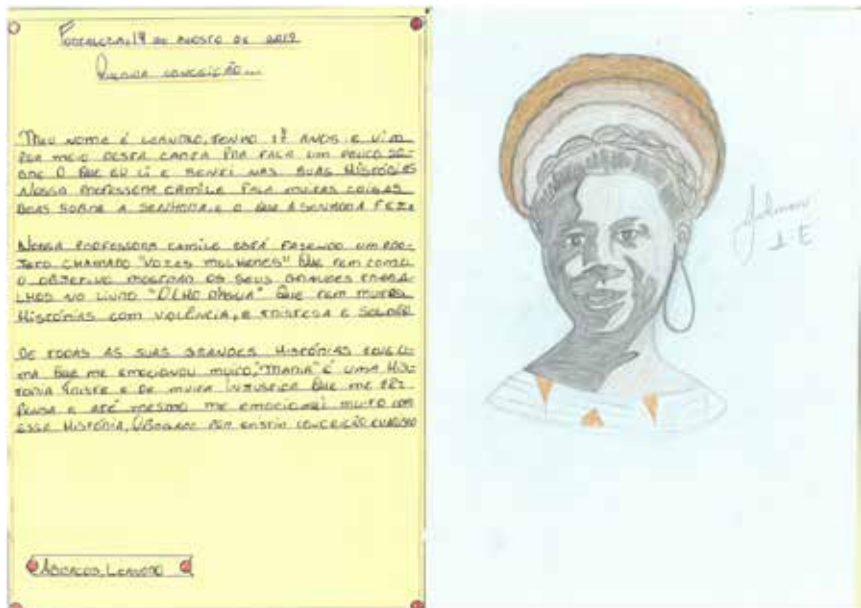 FORTALEZA, 19 DE AGOSTO DE 2019
QUERIDA CONCEIÇÃO...
MEU NOME É LEANDRO, TENHO 17 ANOS, E VIM
POR MEIO DESTA CARTA PRA FALA UM POUCO SO-
BRE O QUE EU LI E SENTI NAS SUAS HISTÓRIAS
NOSSA PROFESSORA CAMILA FALA MUITAS COISAS
BOAS SOBRE A SENHORA, E O QUE A SENHORA FEZ.
NOSSA PROFESSORA CAMILA ESTÁ FAZENDO UM PRO-
JETO CHAMADO "VOZES MULHERES" QUE TEM COMO
O OBJETIVO MOSTRAR OS SEUS GRANDES TRABA-
LHOS NO LIVRO "OLHO D'ÁGUA" QUE TEM MUITAS
HISTÓRIAS COM VIOLÊNCIA, E TRISTESA E SOLIDÃO
DE TODAS AS SUAS GRANDES HISTÓRIAS TEVE U-
MA QUE ME EMOCIONOU MUITO, "MARIA" É UMA HIS-
TORIA TRISTE E DE MUITA INJUSTIÇA QUE ME FEZ
PENSA E ATÉ MESMO ME EMOCIONEI MUITO COM
ESSA HISTÓRIA, OBRIGADO POR EXISTIR CONCEIÇÃO EVARISTO
ABRAÇOS, LEANDRO
1-E